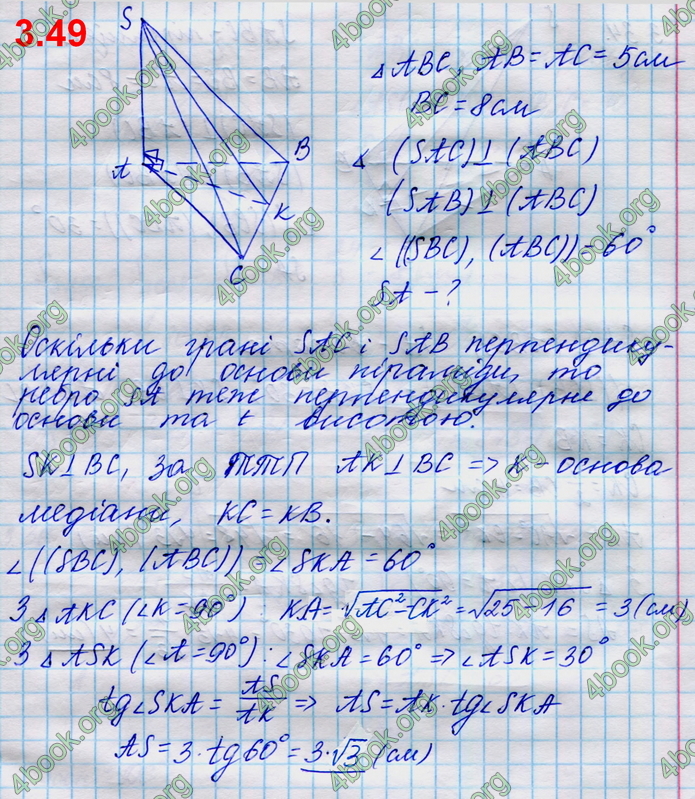 3.49
S
A
B
K
C
△ABC, AB = AC = 5см
BC = 8см
(SAC)⊥(ABC)
(SAB)⊥(ABC)
∠((SBC), (ABC)) = 60°
SA - ?
Оскільки грані SAC і SAB перпендику-
лярні до основи піраміди, то
ребро SA теж перпендикулярне до
основи та є висотою.
SK⊥BC, за ТТП AK⊥BC => K - основа
медіани, KC = KB.
∠((SBC), (ABC)) = ∠SKA = 60°
З △AKC (∠K = 90°) : KA = √AC² - CK² = √25 - 16 = 3 (см)
З △ASK (∠A = 90°) : ∠SKA = 60° => ∠ASK = 30°
tg∠SKA = AS/AK => AS = AK · tg∠SKA
AS = 3 · tg60° = 3·√3 (см)
4book.org